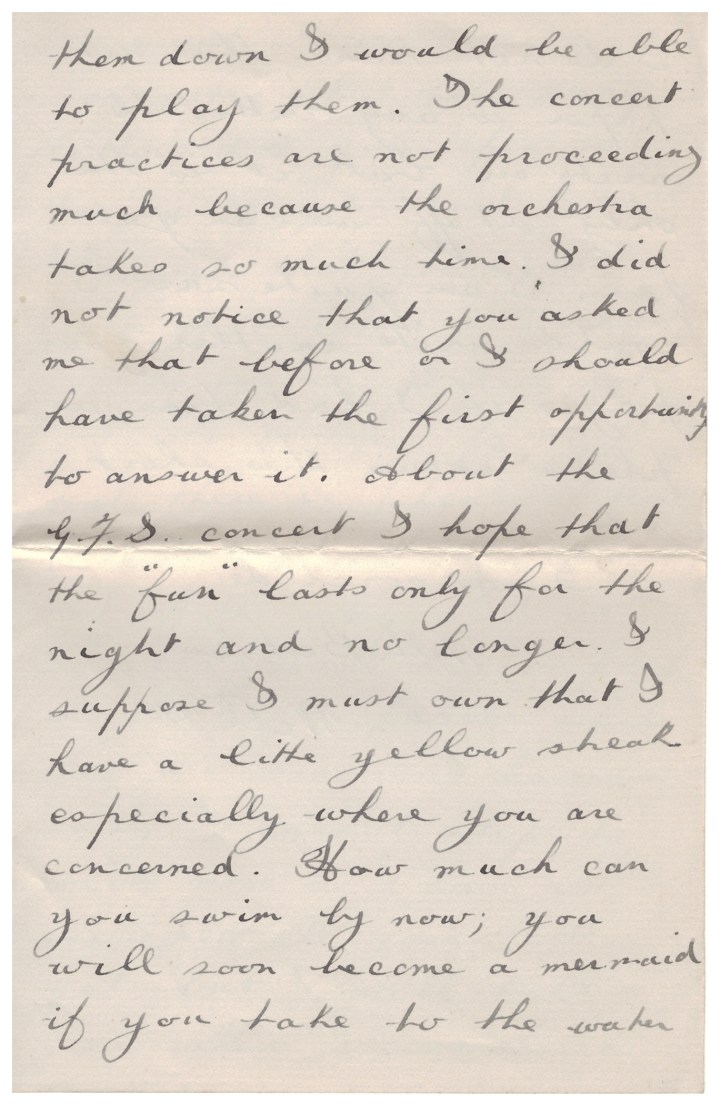 them down I would be able
to play them. The concert
practices are not proceeding
much because the orchestra
takes so much time. I did
not notice that you asked
me that before or I should
have taken the first opportunity
to answer it. About the
G.F.S. concert I hope that
the "fun" lasts only for the
night and no longer. I
suppose I must own that I
have a little yellow streak
especially where you are
concerned. How much can
you swim by now; you
will soon become a mermaid
if you take to the water